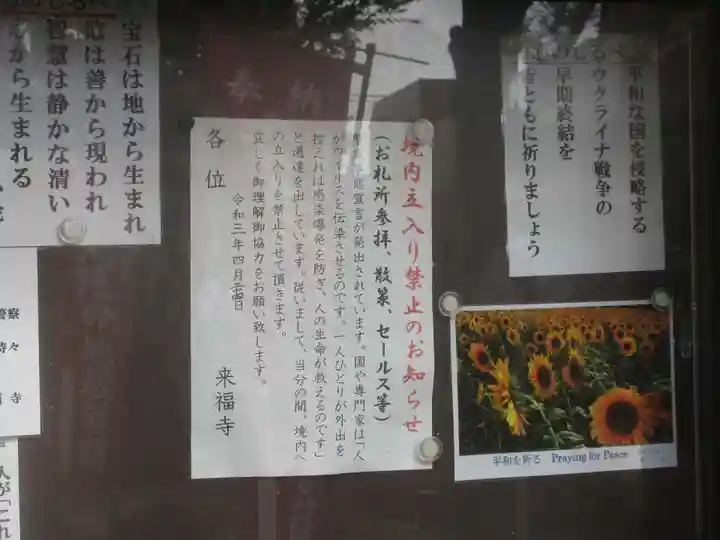 平和な国を侵略する
るウクライナ戦争の
早期終結を
皆ともに祈りましょう
境内立入り禁止のお知らせ
(お札所参拝、散策、セールス等)
宣言が発出されています。国や専門家は「人
がウイルスを伝染させるのです。一人ひとりが外出を
控えれば感染爆発を防ぎ、人の生命が救えるのです」
と通達を出しています。従いまして、当分の間、境内へ
の立入りを禁止させて頂きます。
宜しく御理解御協力をお願い致します。
令和三年四月
各位
来福寺
奉納
宝石は地から生まれ
は善から現われ
智慧は静かな清い
から生まれる
警察
時々
寺
人が「これ
平和を祈る Praying for Peace